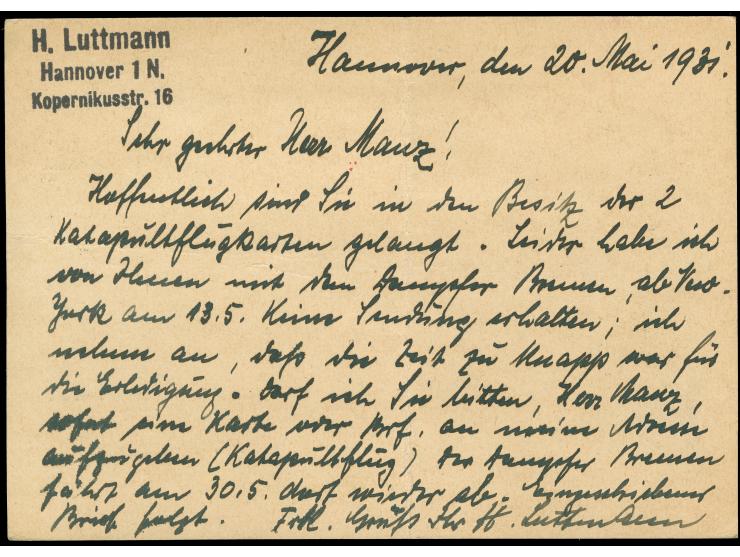 H. Luttmann
Hannover 1 N.
Kopernikusstr. 16
Hannover, den 20. Mai 1931.
Sehr geehrter Herr Manz!
Hoffentlich sind Sie in den Besitz der 2
Katapultflugkarten gelangt. Leider habe ich
von Ihnen mit dem Dampfer Bremen, ab New-
York am 13.5. keine Sendung erhalten; ich
nehme an, daß die Zeit zu knapp war für
die Erledigung. Darf ich Sie bitten, Herr Manz,
sofort eine Karte oder Brf. an meine Adresse
aufzugeben (Katapultflug) der Dampfer Bremen
fährt am 30.5. dort wieder ab. Eingeschriebener
Brief folgt. Frdl. Gruß Ihr H. Luttmann